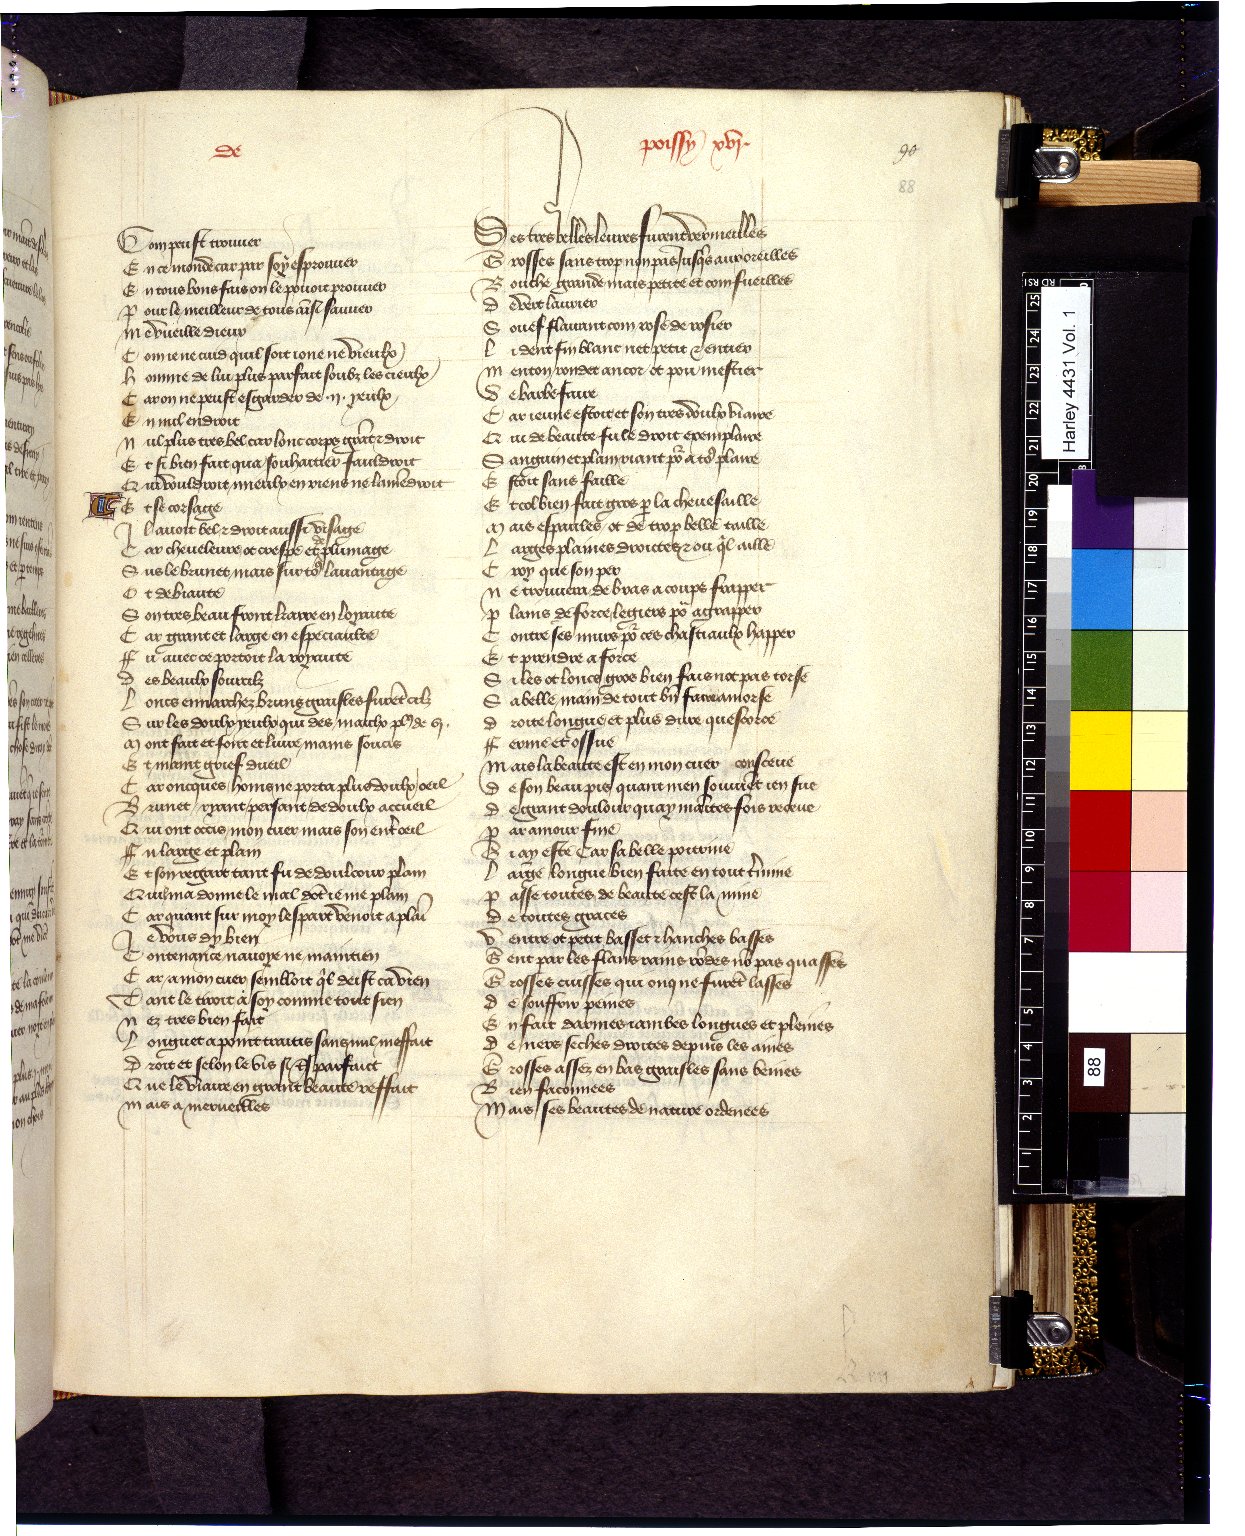 de
poissy xvj.
90
88
Com peust trouver
En ce monde car par soy esprouver
En tous bons fais on le povoit prouver
Pour le meilleur de tous ainsi sauver
Me vueille dieux
Com ie ne cuid quil soit ione ne vieulx
Homme de lui plus parfait soubz les cieulx
Car on ne peust esgarder de .ii. yeulx
En nul endroit
Nul plus tres bel car lonc corps grant droit
Et si bien fait qua souhaitier fauldroit
Qui vouldroit mieulx en riens ne lamendroit
Et se corsage
Il avoit bel et droit aussi visage
Car cheveleure ot crespe et de plumage
Sus le brunet mais sur tous lavantage
Ot de biauté
Son tres beau front larre en loyauté
Car grant et large en especiaulté
Fu avec ce portoit la royauté
Des beaulx sourcilz
Loncs enmarchez bruns graisles furent cilz
Sur les doulx yeulx qui des maulx plus de
Mont fait et font et livré mains soucis
Et maint grief dueil
Car oncques homs ne porta plus doulx oeil
Brunet riant persant de doulx accueil
Qui ont occis mon cuer mais son entroeil
Fu large et plain
Et son regart tant fu de doulcour plain
Qui ma donné le mal dont ie me plain
Car quant sur moy lespart venoit a plain
Je vous dy bien
Contenance navoye ne maintien
Car a mon cuer sembloit quil deist ca vien
Tant le tiroit a soy comme tout sien
Nez tres bien fait
Longuet a point traitis sans nul meffait
Droit et selon le vis si parfait
Que le viaire en grant beauté reffait
Mais a merveilles
Ses tres belles levres furent vermeilles
Grosses sans trop non pas jusques aux oreilles
Bouche grande mais petite et com fueilles
De vert laurier
Souef flairant com rose de rosier
Li dent fin blanc net petit et entier
Menton rondet ancor ot pou mestier
De barbe faire
Car ieune estoit et son tres doulx viaire
Qui de beauté fu le droit exemplaire
Sanguin et plain riant pour a tous plaire
Estoit sans faille
Et col bien fait gros par la chevesaille
Mais espaules ot de trop belle taille
Larges plaines droites et ou quil aille
Croy que son per
Ne trouvera de bras a coups frapper
Plains de force legiers pour agrapper
Contre ses murs pour ces chastiaulx happer
Et prendre a force
Si les ot loncs gros bien fais not pas torse
Sa belle main de tout bien faire amorse
Droite longue et plus dure quescorce
Ferme et ossue
Mais la beauté est en mon cuer consceue
De son beau pis quant men souvient ien sue
De grant doulour quay maintes fois receue
Par amour fine
Qui ay esté Car sa belle poitrine
Large longue bien faite en tout termine
Passe toutes de beauté cest la mine
De toutes graces
Ventre ot petit basset et hanches basses
Gent par les flans rains rondes non pas quasses
Grosses cuisses qui onq ne furent lasses
De souffrir peines
En fait darmes iambes longues et pleines
De nervs seches droites depuis les aines
Grosses assez en bas graisles sans veines
Bien faconnees
Mais ses beautés de nature ordenees
Harley 4431 Vol. 1
88
25
24
23
22
21
20
19
18
17
16
15
14
13
12
11
10
9
8
7
5
4
3
2
1